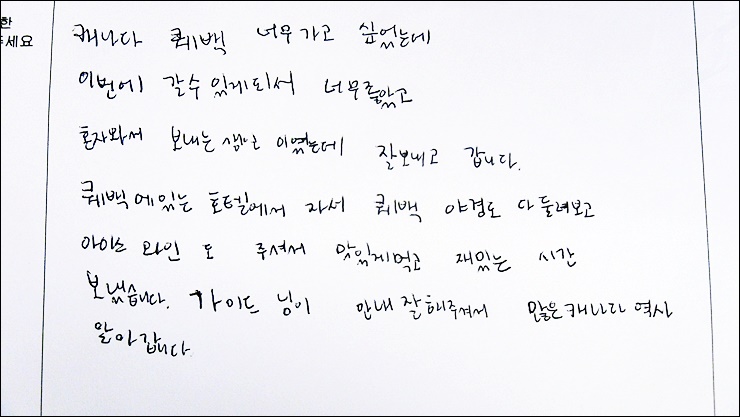 한
주세요
캐나다 퀘백 너무 가고 싶었는데
이번에 갈수 있게되서 너무좋았고
혼자와서 보내는 생일 이였는데 잘보내고 갑니다.
퀘백에있는 호텔에서 자서 퀘백 야경도 다 둘러보고
아이스 와인 도 주셔서 맛있게먹고 재밌는 시간
보냈습니다. 가이드 님이 안내 잘해주셔서 많은캐나다 역사
알아갑니다